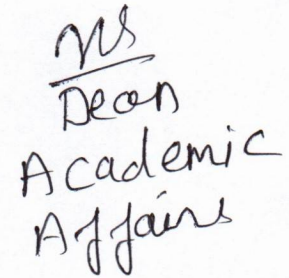 Dean
Academic
Affairs